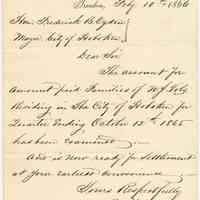 Feby 10th 1866
Hon. Frederick B. Ogden
Mayor City of Hoboken
Dear Sir
The account for
amount paid Families of N.J. Vols
Residing in The City of Hoboken for
Quarter Ending October 12th 1865
has been examined
and is now ready for Settlement
at your earliest convenience
Yours Respectfully